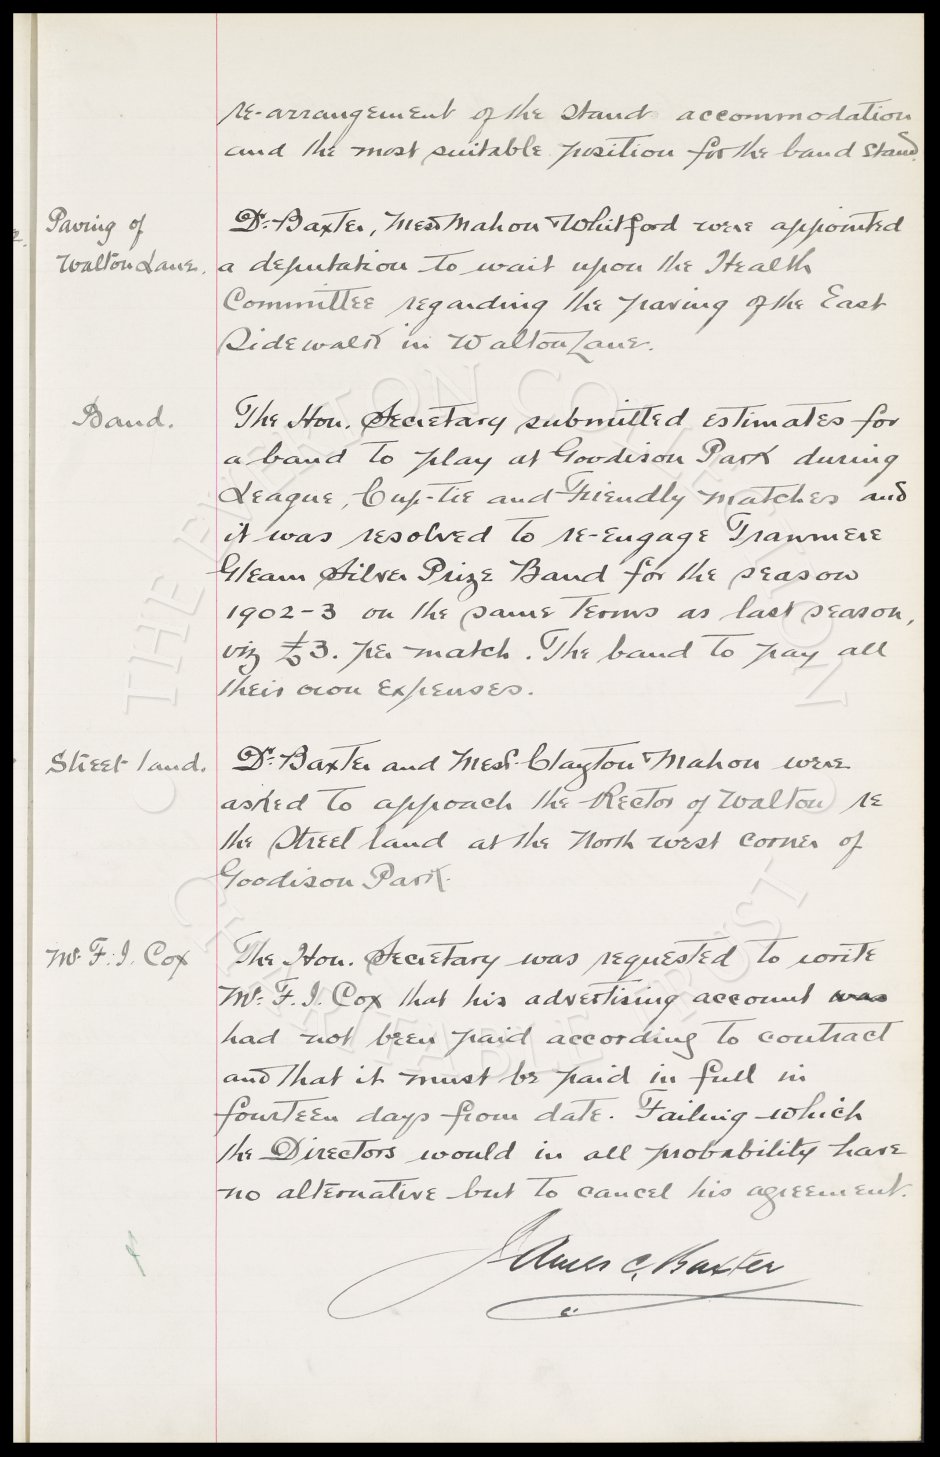 re-arrangement of the stand accommodation
and the most suitable position for the band stand.
Paving of
Walton Lane.
Dr. Baxter, Messrs Mahon & Whitford were appointed
a deputation to wait upon the Health
Committee regarding the paving of the East
Sidewalk in Walton Lane.
Band.
The Hon. Secretary submitted estimates for
a band to play at Goodison Park during
League, Cup-tie and Friendly matches and
it was resolved to re-engage Tranmere
Gleam Silver Prize Band for the season
1902-3 on the same terms as last season,
viz £3. per match. The band to pay all
their own expenses.
Street land.
Dr. Baxter and Messrs Clayton & Mahon were
asked to appoach the Rector of Walton re
the Street land at the North west corner of
Goodison Park.
Mr. F. J. Cox
The Hon. Secretary was requested to write
Mr. F. J. Cox that his advertising account was
had not been paid according to contract
and that it must be paid in full in
fourteen days from date. Failing which
the Directors would in all probability have
no alternative but to cancel his agreement.
James C. Baxter
THE EVERTON COLLECTION
CHARITABLE TRUST